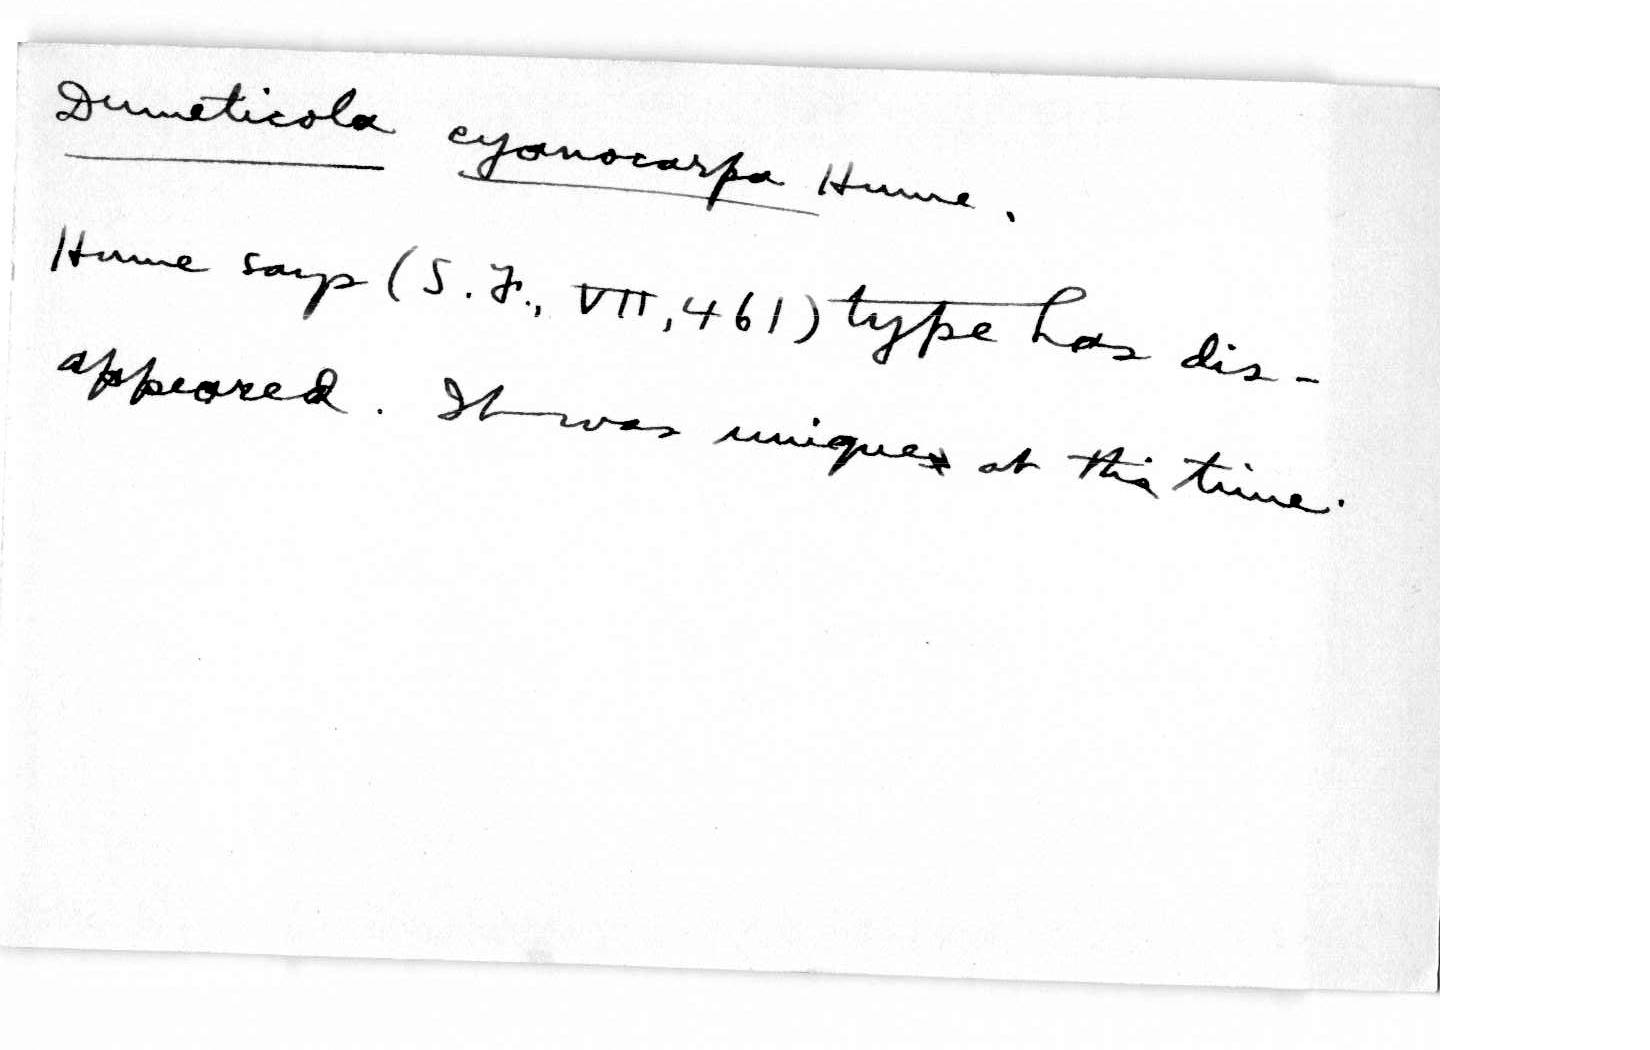 Dumeticola cyanocarpa Hume.
Hume says (S. F., VII, 461) type has dis-
appeared. It was unique at this time.